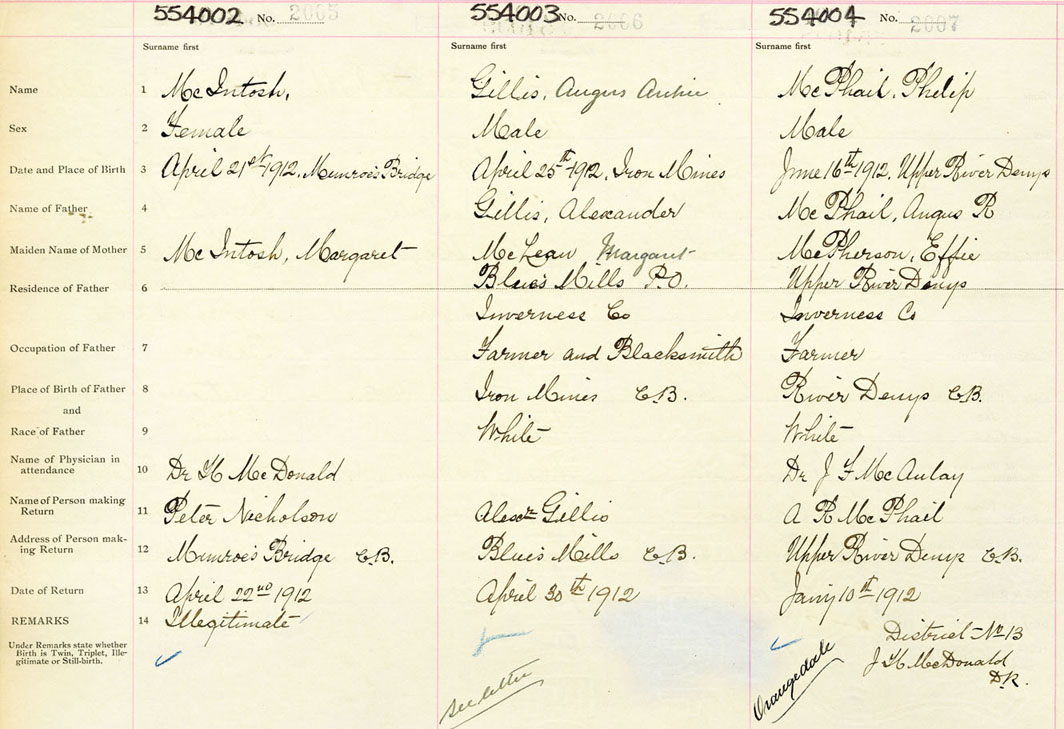 554002 No. 2005 554003 No. 2006 554004 No. 2007
Surname first Surname first Surname first
Name 1 McIntosh, Gillis, Angus Archie McPhail, Philip
Sex 2 Female Male Male
Date and Place of Birth 3 April 21st 1912, Munroe's Bridge April 25th 1912, Iron Mines June 16th 1912, Upper River Denys
Name of Father 4 Gillis, Alexander McPhail, Angus R
Maiden Name of Mother 5 McIntosh, Margaret McLean Margaret McPherson, Effie
Residence of Father 6 Blue's Mills P.O. Upper River Denys
Inverness Co Inverness Co
Occupation of Father 7 Farmer and Blacksmith Farmer
Place of Birth of Father 8 Iron Mines C.B. River Denys C.B.
and
Race of Father 9 White White
Name of Physician in
attendance 10 Dr H McDonald Dr J F McAulay
Name of Person making
Return 11 Peter Nicholson Alexr Gillis A R McPhail
Address of Person mak-
ing Return 12 Munroe's Bridge C.B. Blue's Mills C.B. Upper River Denys C.B.
Date of Return 13 April 22nd 1912 April 30th 1912 10th 1912
REMARKS 14 Illegitimate
Under Remarks state whether
Birth is Twin, Triplet, Ille-
gitimate or Still-birth.
see letter
Orangedale
District No 13
J H McDonald
D.R.